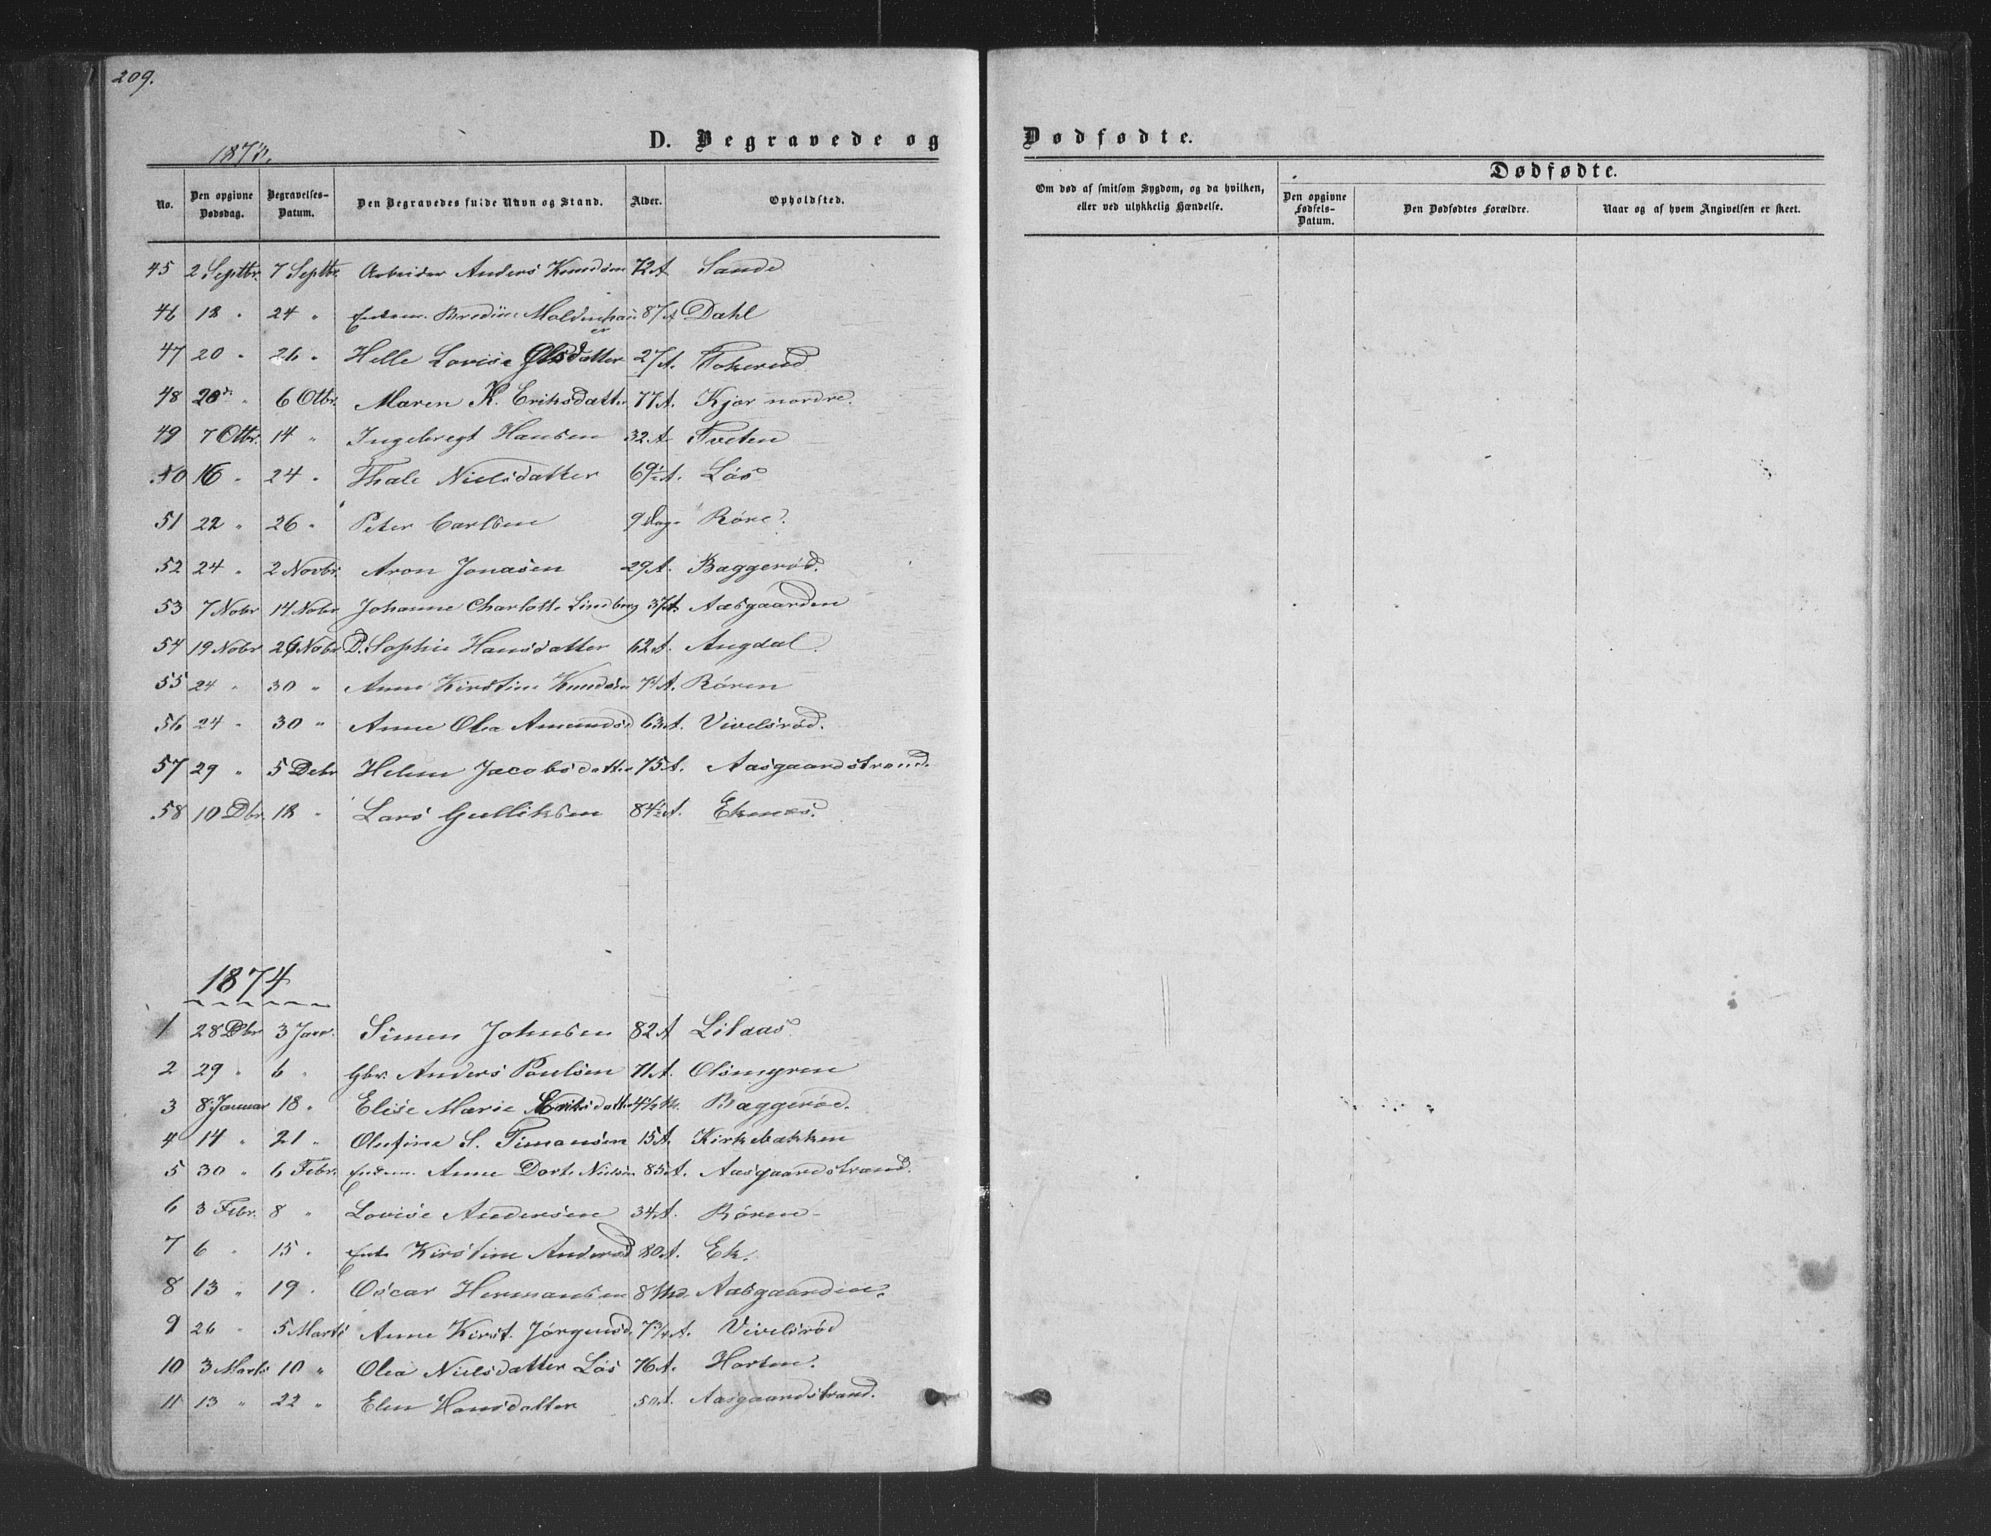 209.
D. Begravede og Dødfødte.
1873.
No. Den opgivne Dødsdag. Begravelses-Datum. Den Begravedes fulde Navn og Stand. Alder. Opholdsted. Om død af smitsom Sygdom, og da hvilken, eller ved ulykkelig Hændelse. Dødfødte.
Den opgivne Fødsels-Datum. Den Dødfødtes Forældre. Naar og af hvem Angivelsen er skeet.
45 2 Septbr. 7 Septbr. Arbeider Anders Knudsen 72 A Sande
46 18 " 24 " Enkem. Moldenhauer 87 A Dahl
47 20 " 26 " Helle Lovise Olsdatter 27 A. Tokerud
48 20 " 6 Otbr. Maren K. Eriksdatter 77 A. Kjær nordre.
49 7 Otbr. 14 " Ingebregt Hansen 32 A. Tveten
50 16 " 24 " Thale Nielsdatter 69½ A. Løs
51 22 " 26 " Peter Carlsen 9 Dage Röre.
52 24 " 2 Novbr. Aron Jonasen 29 A. Baggeröd.
53 7 Nobr 14 Nobr Johanne Charlotte Lindberg 37 A. Aasgaarden
54 19 Nobr 26 Nobr D. Sophie Hansdatter 62 A. Augdal.
55 24 " 30 " Anne Kirstine Knudsen A. Rören
56 24 " 30 " Anne Olea Amundsd 63 A. Vivelsröd.
57 29 " 5 Debr Helene Jacobsdatter 75 A. Aasgaardstrand.
58 10 Dbr. 18 " Lars Gulliksen 84½ A. Eknes.
1874
1 28 Dbr 3 Janr. Simen Johnsen 82 A Lilaas
2 29 " 6 " Gbr. Anders Poulsen 71 A. Olsmyren
3 8 Januar 18 " Elise Marie 4½ Baggeröd.
4 14 " 21 " Olefine S. Timansen 15 A. Kirkebakken
5 30 " 6 Febr. Enkem. Anne Dorte Nielsen 85 A. Aasgaardstrand.
6 3 Febr. 8 " Lovise Andersen 34 A. Rören
7 6 " 15 " Enke Kirstine Andersd 80 A. Ek.
8 13 " 19 " Oscar Hermansen 8 Md. Aasgaarden.
9 26 " 5 Marts Anne Kirst. Jörgensd. A. Vivelsröd
10 3 Marts 10 " Olea Nielsdatter Løs 76 A. Horten.
11 13 " 22 " Elen Hansdatter 50 A. Aasgaardstrand.